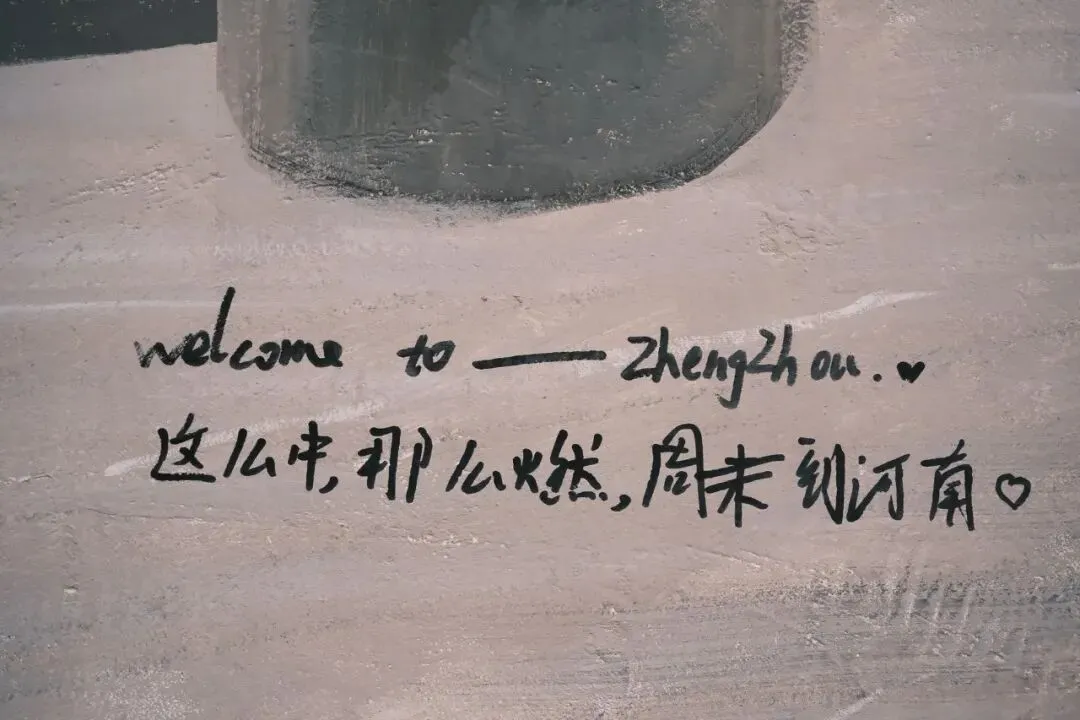 welcome to — ZhengZhou. ♥
这么中,那么燃,周末到河南♡